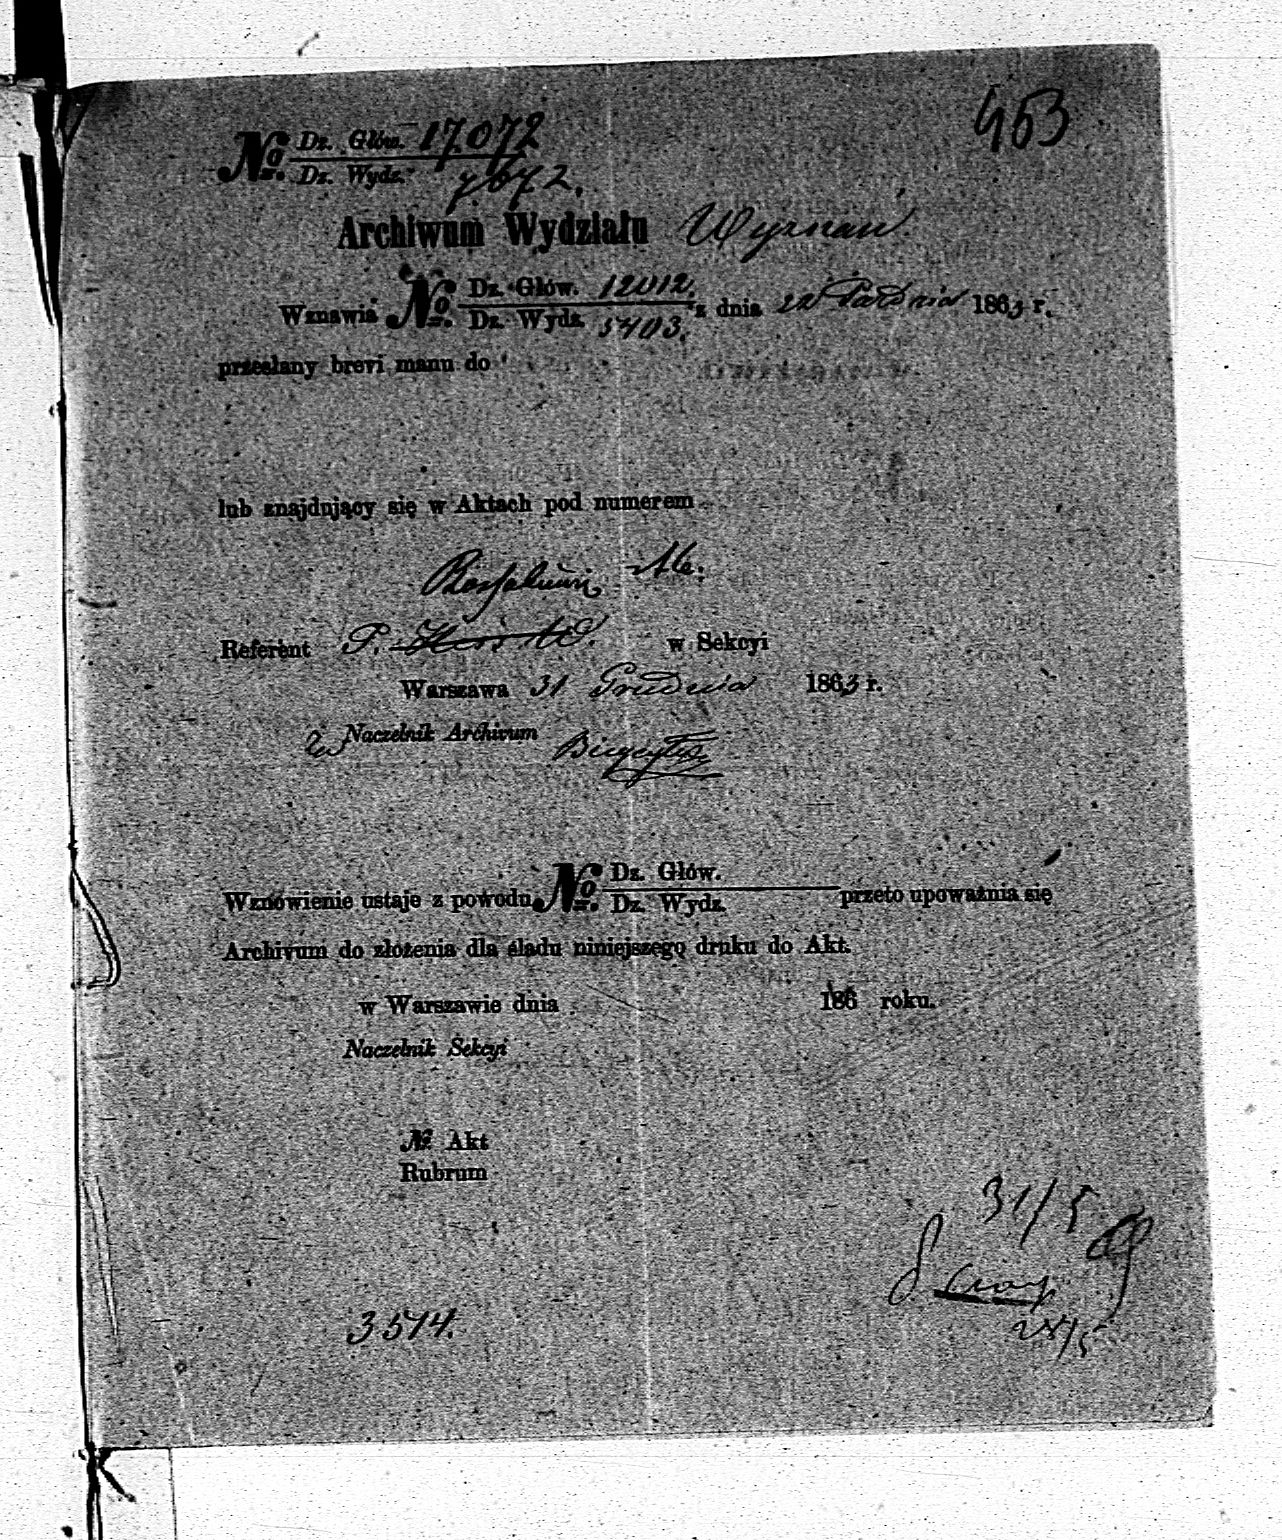 453
No. Dz. Głów. 17.072
Dz. Wydz. 7672.
Archiwum Wydziału Wyznań
Wznawia No. Dz. Głów. 12012. z dnia 22 Paźdź 1863 r.
Dz. Wydz. 5403.
przesłany brevi manu do
lub znajdujący się w Aktach pod numerem
Referent P. w Sekcyi
Warszawa 31 Grudnia 1863 r.
Naczelnik Archivum
Wznówienie ustaje z powodu No. Dz. Głów. przeto upoważnia się
Dz. Wydz.
Archivum do złożenia dla śladu niniejszego druku do Akt.
w Warszawie dnia 186 roku.
Naczelnik Sekcyi
№ Akt
Rubrum
31/5
28/5
3514.